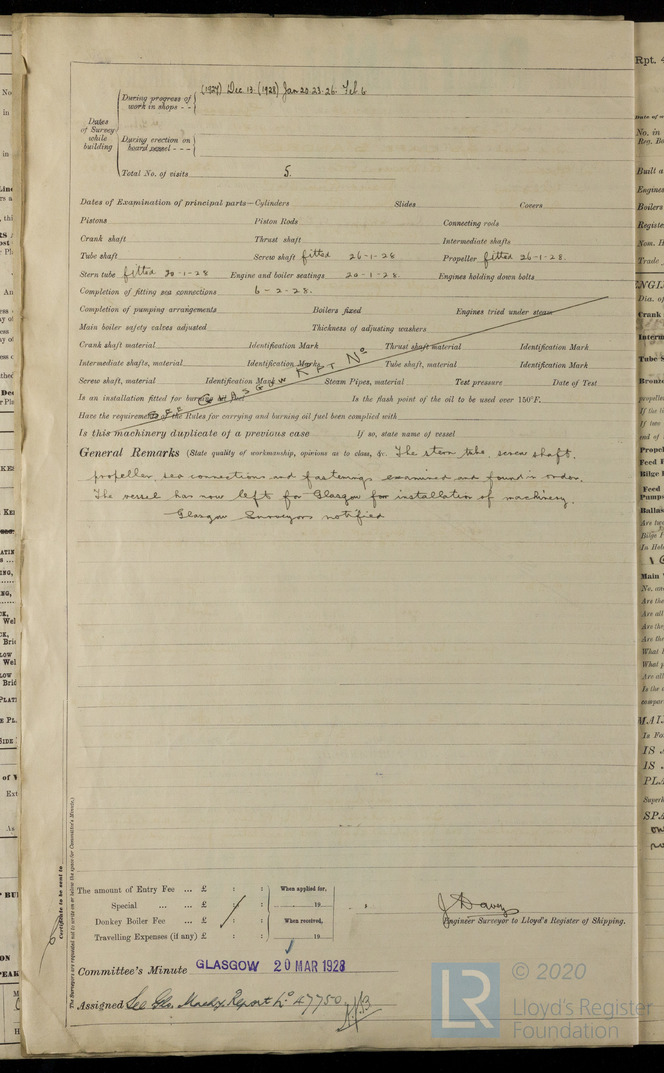 (1927) Dec 13 (1928) Jan 20. 23. 26 Feb 6
During progress of work in shops - -
Dates of Survey while building
During erection on board vessel - - -
Total No. of visits 5.
Dates of Examination of principal parts—Cylinders Slides Covers
Pistons Piston Rods Connecting rods
Crank shaft Thrust shaft Intermediate shafts
Tube shaft Screw shaft fitted 26-1-28 Propeller fitted 26-1-28.
Stern tube fitted 20-1-28 Engine and boiler seatings 20-1-28. Engines holding down bolts
Completion of fitting sea connections 6-2-28.
Completion of pumping arrangements Boilers fixed Engines tried under steam
Main boiler safety valves adjusted Thickness of adjusting washers
Crank shaft material Identification Mark Thrust shaft material Identification Mark
Intermediate shafts, material Identification Marks Tube shaft, material Identification Mark
Screw shaft, material Identification Mark Steam Pipes, material Test pressure Date of Test
SEE GLASGOW RPT No
Is an installation fitted for burning oil fuel Is the flash point of the oil to be used over 150°F.
Have the requirements of the Rules for carrying and burning oil fuel been complied with
Is this machinery duplicate of a previous case If so, state name of vessel
General Remarks (State quality of workmanship, opinions as to class, &c. The stern tube, screw shaft,
propeller, sea connections and fastenings examined and found in order.
The vessel has now left for Glasgow for installation of machinery.
Glasgow Surveyors notified
The amount of Entry Fee ... £ : : When applied for,
Special ... ... £ : : 19
Donkey Boiler Fee ... £ : : When received,
Travelling Expenses (if any) £ : : 19
J Davy
Engineer Surveyor to Lloyd's Register of Shipping.
Committee's Minute GLASGOW 20 MAR 1928
Assigned See Gls. Machy Report No 47750
Certificate to be sent to
(The Surveyors are requested not to write on or below the space for Committee's Minute.)
LR
© 2020
Lloyd's Register
Foundation
Rpt. 4